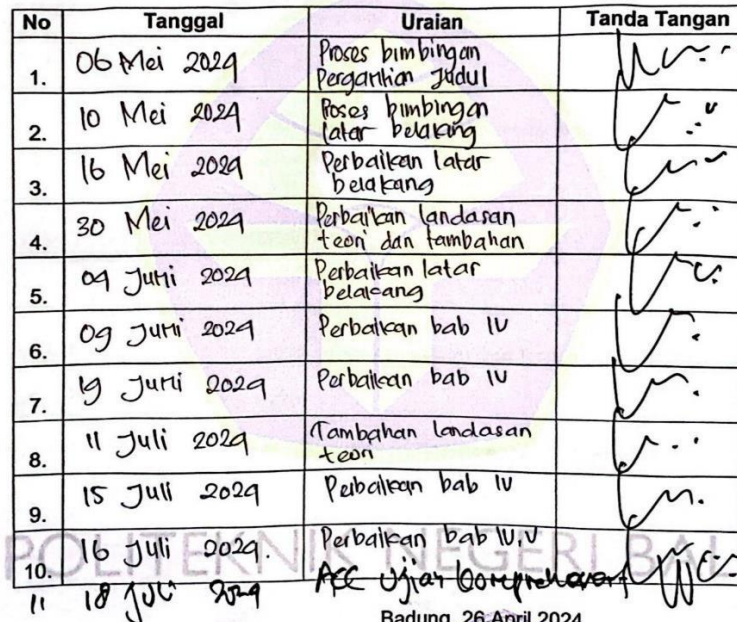 No Tanggal Uraian Tanda Tangan
1. 06 Mei 2024 Proses bimbingan
Pergantian Judul
2. 10 Mei 2024 Poses bimbingan
latar belakang
3. 16 Mei 2024 Perbaikan latar
belakang
4. 30 Mei 2024 Perbaikan landasan
teori dan tambahan
5. 04 Juni 2024 Perbaikan latar
belakang
6. 09 Juni 2024 Perbaikan bab IV
7. 19 Juni 2024 Perbaikan bab IV
8. 11 Juli 2024 Tambahan landasan
teori
9. 15 Juli 2024 Perbaikan bab IV
10. 16 Juli 2024. Perbaikan bab IV, V
POLITEKNIK NEGERI BAL
11 18 Juli 2024 ACC Ujian Komprehensif
Badung, 26 April 2024